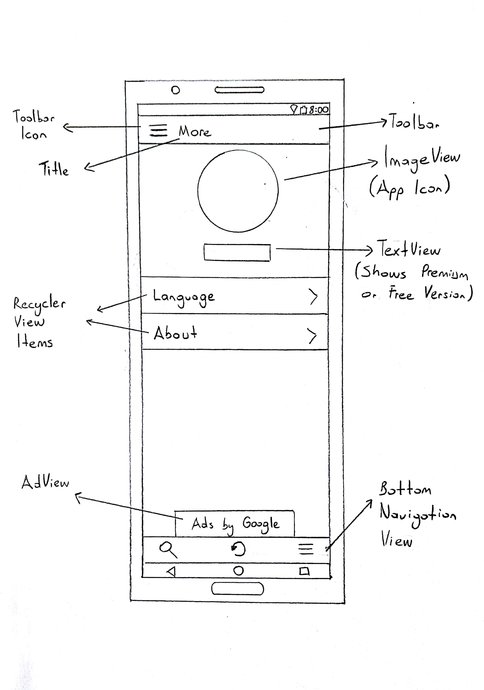 8:00
Toolbar
Icon
More
Toolbar
Title
ImageView
(App Icon)
TextView
(Shows Premium
or Free Version)
Language
About
Recycler
View
Items
AdView
Ads by Google
Bottom
Navigation
View